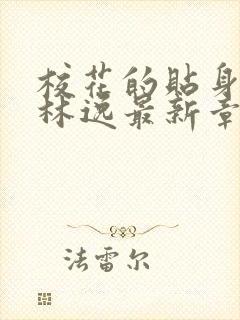 校花的贴身
林逸最新章
法雷尔